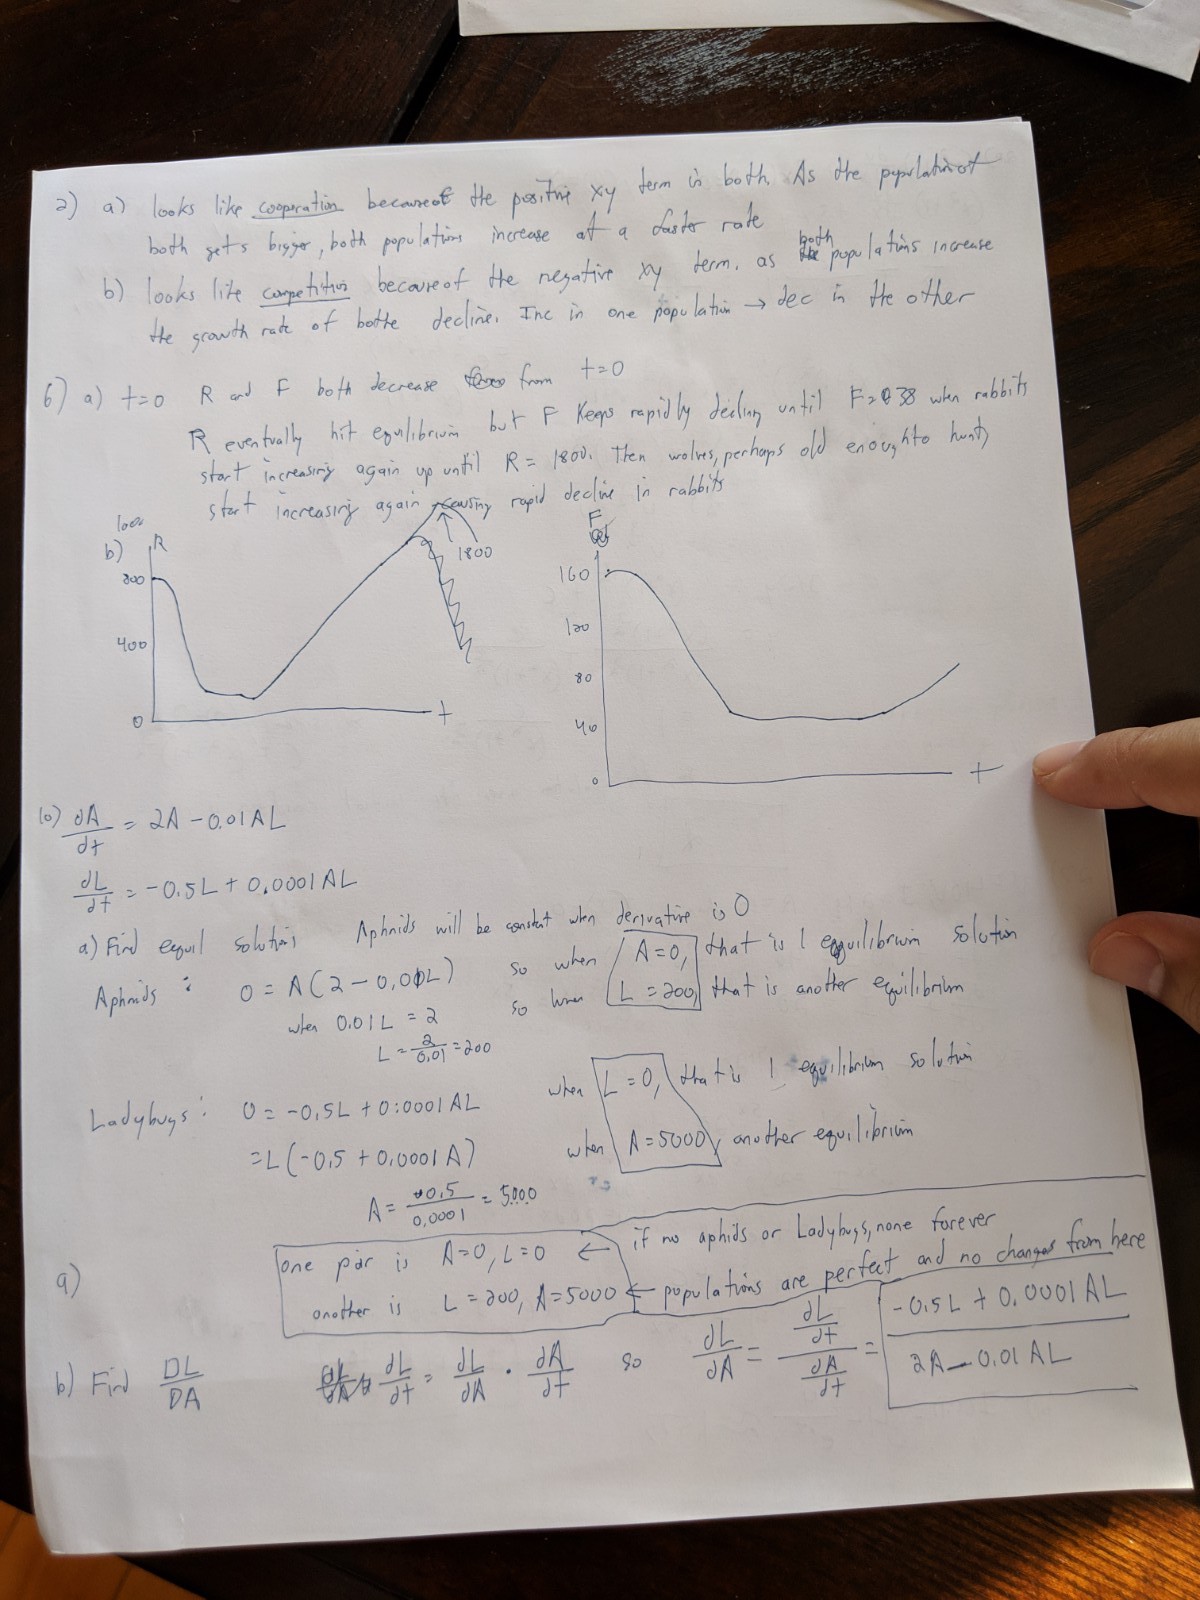 2) a) looks like cooperation because of the positive xy term in both. As the population of
both gets bigger, both populations increase at a faster rate
b) looks like competition because of the negative xy term. as both populations increase
the growth rate of bothe decline. Inc in one population → dec in the other
6) a) t=0 R and F both decrease from t=0
R eventually hit equilibrium but F keeps rapidly declining until F=38 when rabbits
start increasing again up until R = 1800. Then wolves, perhaps old enough to hunt,
start increasing again causing rapid decline in rabbits
b) R
1800
800
400
0
t
F
160
120
80
40
0
t
10) dA/dt = 2A - 0.01AL
dL/dt = -0.5L + 0.0001AL
a) Find equil solutions Aphnids will be constant when derivative is 0
Aphnids: 0 = A(2 - 0.01L) so when A=0, that is 1 equilibrium solution
when 0.01L = 2 so when L = 200, that is another equilibrium
L = 2/0.01 = 200
Ladybugs: 0 = -0.5L + 0.0001AL when L=0, that is 1 equilibrium solution
= L(-0.5 + 0.0001A) when A=5000, another equilibrium
A = 0.5/0.0001 = 5000
a) one pair is A=0, L=0 ← if no aphids or Ladybugs, none forever
another is L=200, A=5000 ← populations are perfect and no changes from here
b) Find DL/DA dL/dt = dL/dA · dA/dt so dL/dA = (dL/dt)/(dA/dt) = (-0.5L + 0.0001AL)/(2A - 0.01AL)